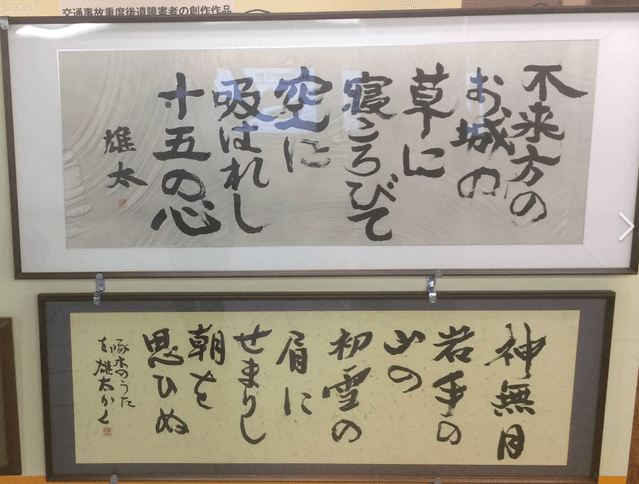 交通事故重度後遺障害者の創作作品
不来方の
お城の
草に
寝ころびて
空に
吸はれし
十五の心
雄太
神無月
岩手の
山の
初雪の
眉に
せまりし
朝を
思ひぬ
啄木のうた
を雄太かく